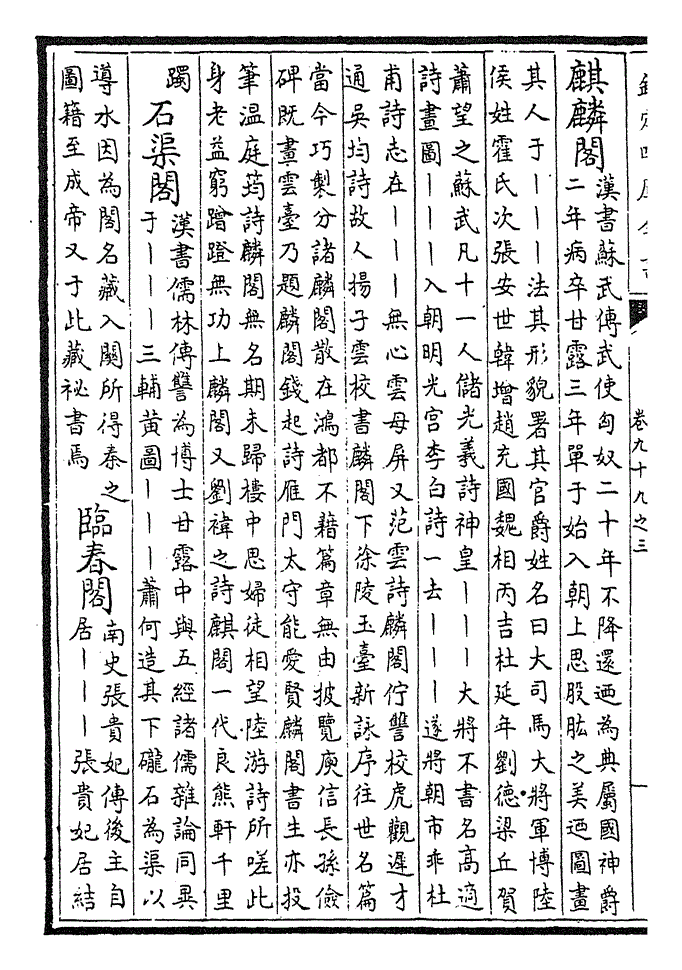 卷九十九之三
麒麟閣
漢書蘇武傳武使匈奴二十年不降還迺為典屬國神爵
二年病卒甘露三年單于始入朝上思股肱之美迺圖畫
其人于｜｜｜法其形貌署其官爵姓名曰大司馬大將軍博陸
侯姓霍氏次張安世韓增趙充國魏相丙吉杜延年劉德梁丘賀
蕭望之蘇武凡十一人儲光義詩神皇｜｜｜大將不書名高適
詩畫圖｜｜｜入朝明光宮李白詩一去｜｜｜遂將朝市乖杜
甫詩志在｜｜｜無心雲母屏又范雲詩麟閣佇讐校虎觀遲才
通吳均詩故人揚子雲校書麟閣下徐陵玉臺新詠序往世名篇
當今巧製分諸麟閣散在鴻都不藉篇章無由披覽庾信長孫儉
碑既畫雲臺乃題麟閣錢起詩雁門太守能愛賢麟閣書生亦投
筆溫庭筠詩麟閣無名期未歸樓中思婦徒相望陸游詩所嗟此
身老益窮蹭蹬無功上麟閣又劉禕之詩麒閣一代良熊軒千里
躅
石渠閣
漢書儒林傳讐為博士甘露中與五經諸儒雜論同異
于｜｜｜三輔黃圖｜｜｜蕭何造其下礲石為渠以
導水因為閣名藏入關所得秦之
圖籍至成帝又于此藏祕書焉
臨春閣
南史張貴妃傳後主自
居｜｜｜張貴妃居結